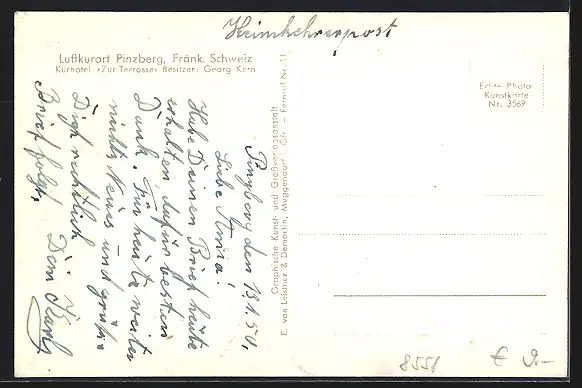 Heimkehrerpost
Luftkurort Pinzberg, Fränk. Schweiz
Kurhotel »Zur Terrasse« Besitzer: Georg Kern
Echte Photo-
Kunstkarte
Nr. 3569
Pinzberg den 13.1.50.
Liebe Anna!
Habe Deinen Brief heute
erhalten, dafür besten
Dank. Für heute weiter
nichts Neues und grüße
Dich recht lich
Brief folgt. Dein Karl
Graphische Kunst- und Großverlagsanstalt
E. von Leistner & Demartin, Muggendorf Ofr. – Fernruf Nr. 11
8551
€ 9.-